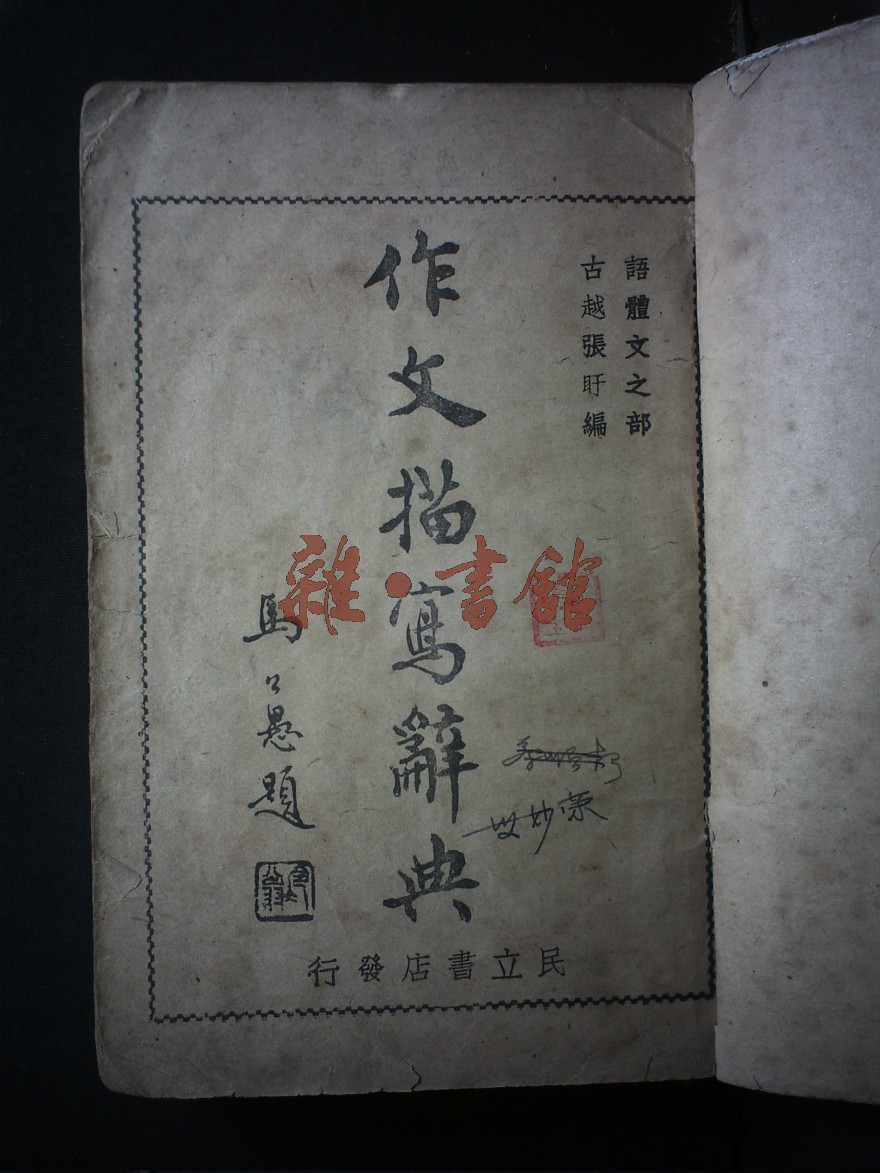 語體文之部
古越張盱編
作文描寫辭典
馬公愚題
民立書店發行
雜·書館